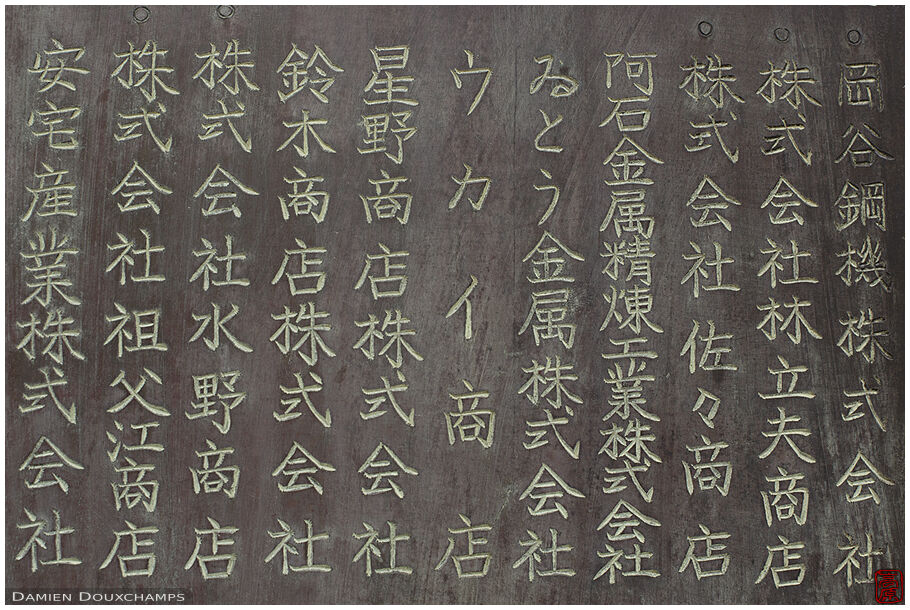 岡谷鋼機株式会社
株式会社林立夫商店
株式会社佐々商店
阿石金属精煉工業株式会社
ゐとう金属株式会社
ウカイ商店
星野商店株式会社
鈴木商店株式会社
株式会社水野商店
株式会社祖父江商店
安宅産業株式会社
DAMIEN DOUXCHAMPS